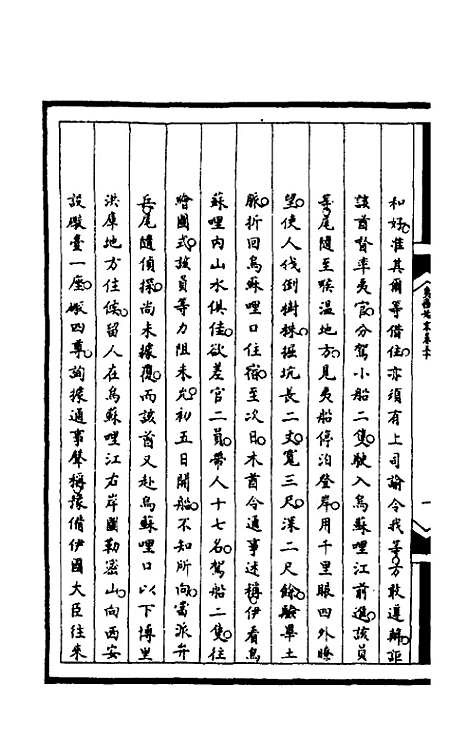 和好。准其爾等借住。亦須有上司諭令我等。方敢遵辦。詎
該酋督率夷官。分駕小船二隻。駛入烏蘇哩江前進。該員
等尾隨至喉溫地方。見夷船停泊登岸。用千里眼四外瞭
望。使人伐倒樹株。掘坑長二丈。寬三尺。深二尺餘。驗畢土
脈。折回烏蘇哩口住宿。至次日。木酋令通事述稱。伊看烏
蘇哩內山水俱佳。欲差官二員。帶人十七名。駕船二隻。往
繪圖式。該員等力阻未允。初五日開船。不知所向。當派弁
兵尾隨偵探。尚未據覆。而該酋又赴烏蘇哩口以下博里
洪庫地方住候。留人在烏蘇哩江右岸圖勒密山。向西安
設礮臺一座。礮四尊。詢據通事聲稱。豫備伊國大臣往來